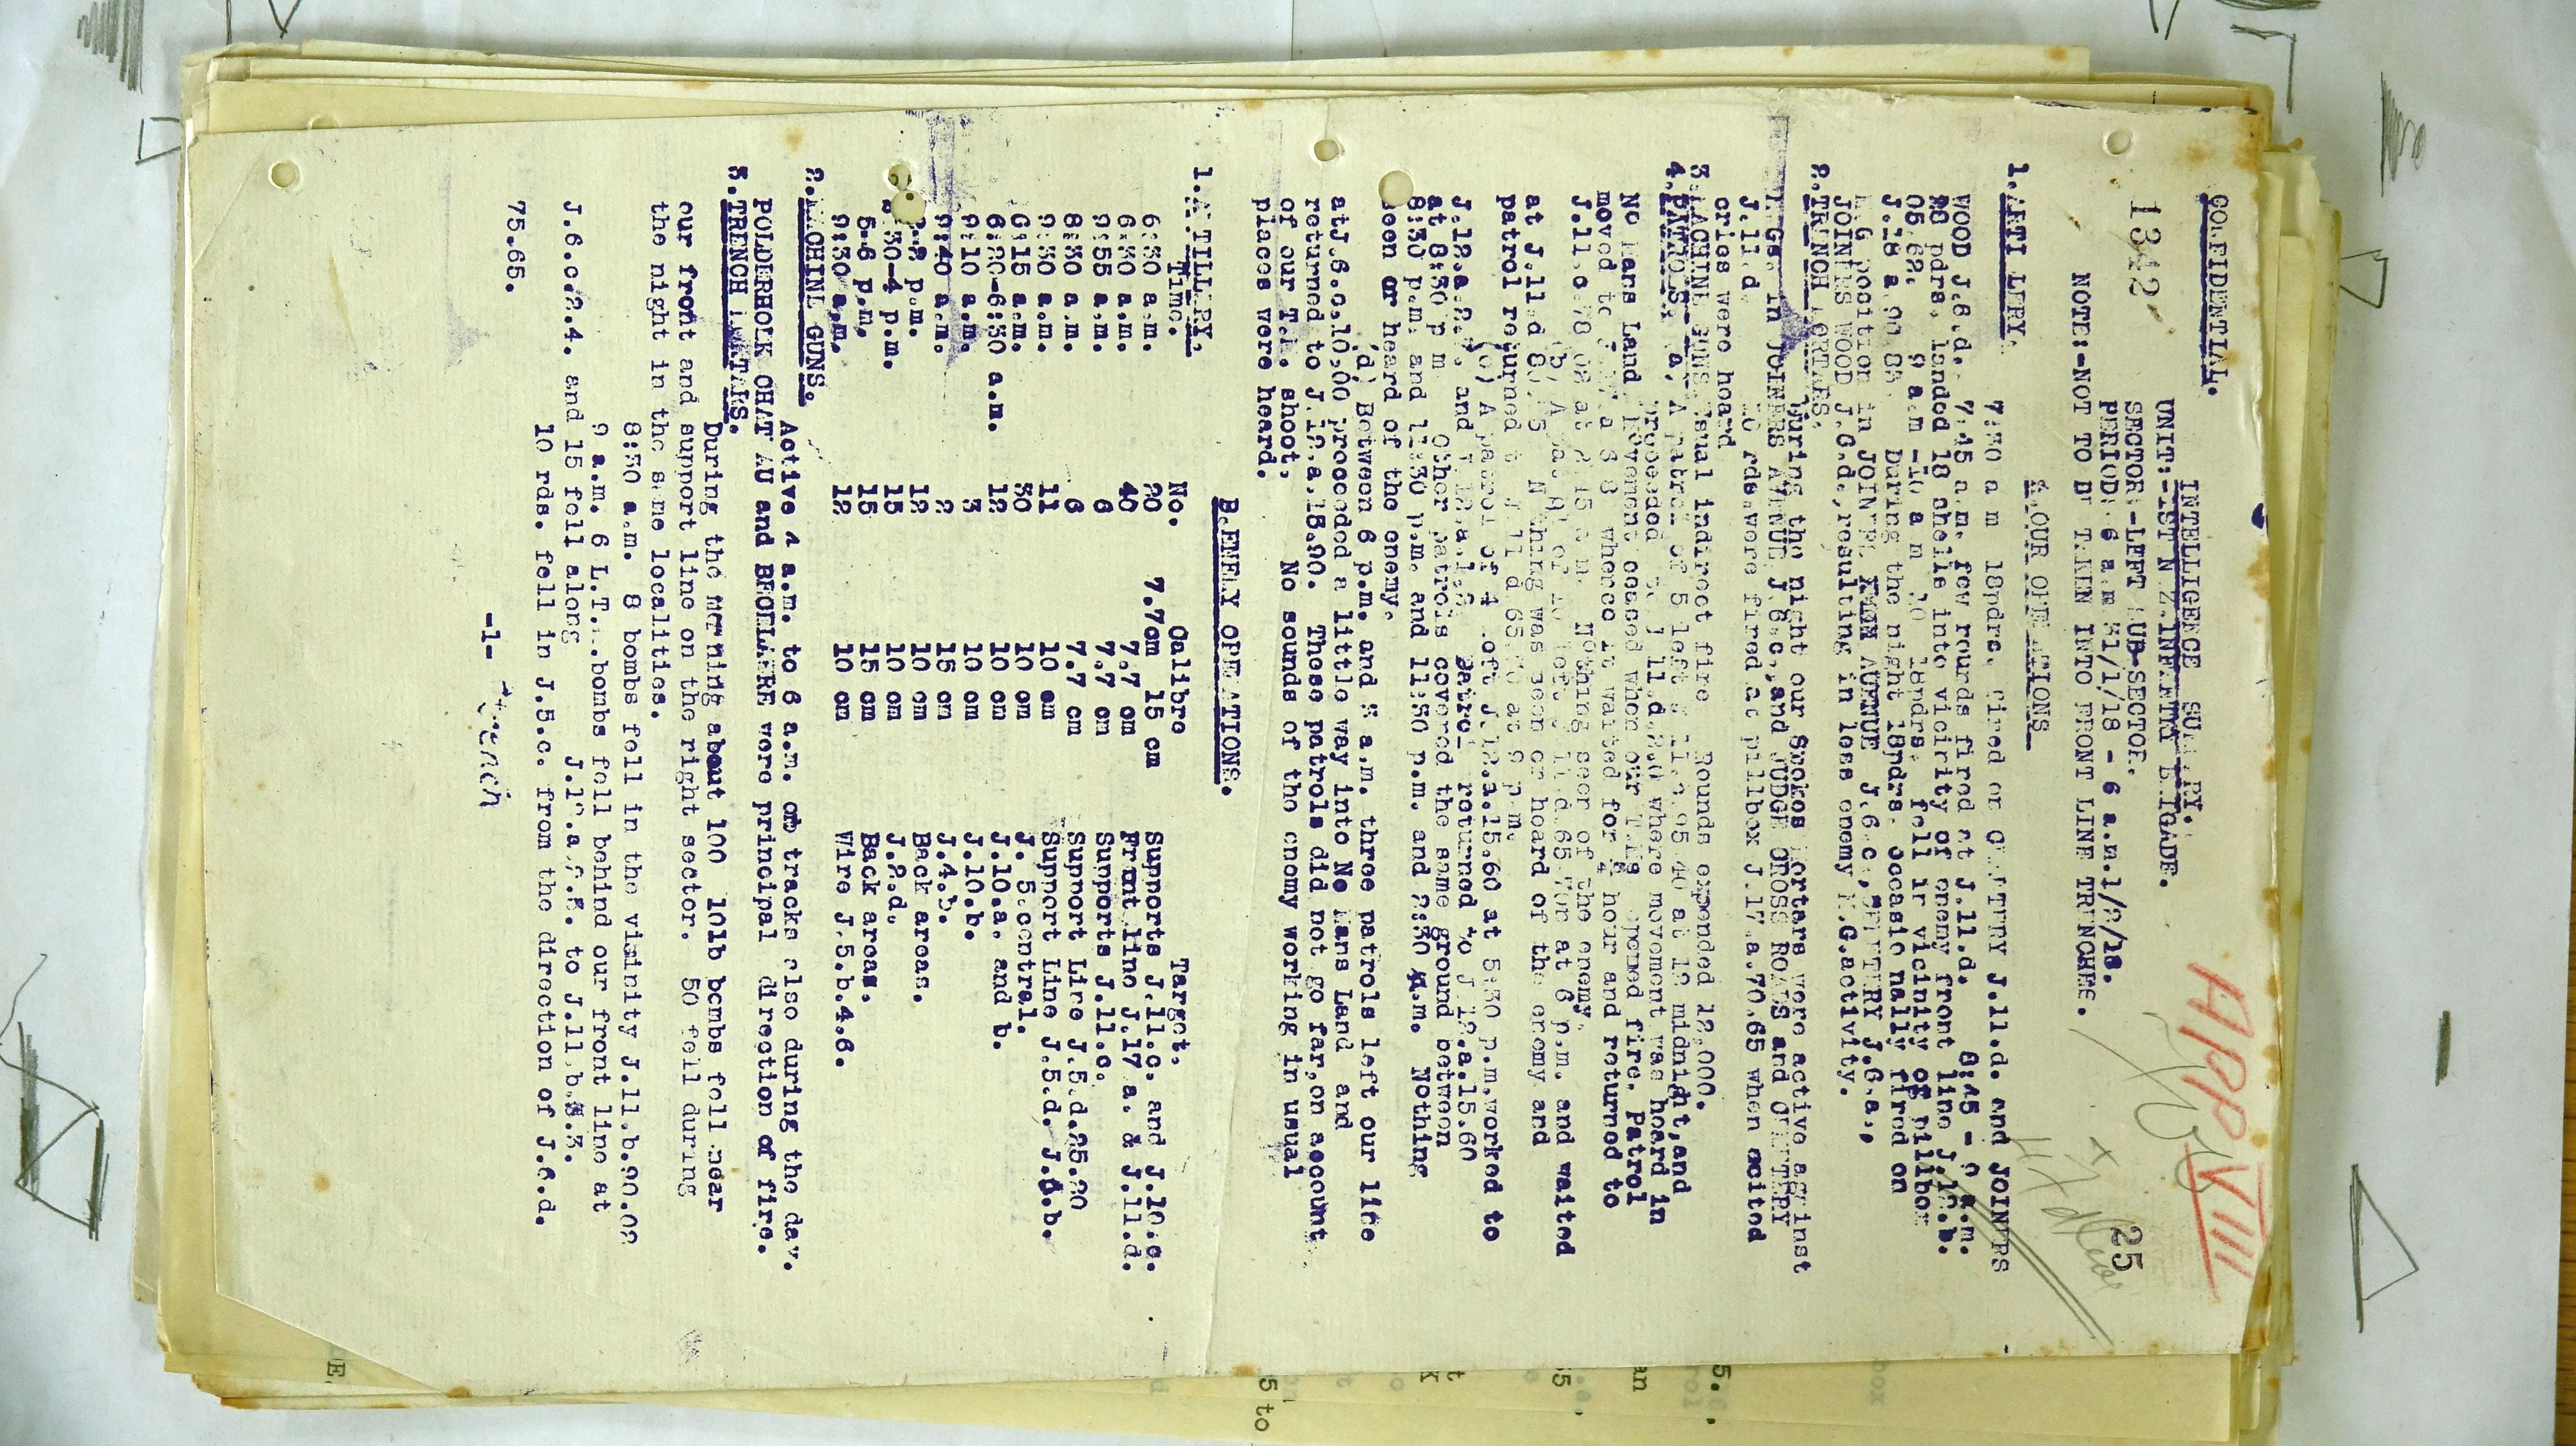 CONFIDENTIAL.
APP VIII
1342
25
INTELLIGENCE SUMMARY.
UNIT:-1ST N.Z.INFANTRY BRIGADE.
SECTOR:-LEFT SUB-SECTOR.
PERIOD: 6 a.m 31/1/18 - 6 a.m.1/2/18.
NOTE:-NOT TO BE TAKEN INTO FRONT LINE TRENCHES.
A.OUR OPERATIONS
1.ARTILLERY.
7:30 a m 18pdrs. fired on CEMETERY J.11.d. and JOINERS
WOOD J.6.d. 7:45 a.m.few rounds fired at J.11.d. 8:45 - 9 a.m.
18 pdrs. landed 18 shells into vicinity of enemy front line J.12.b.
05.62. 9 a.m -10 a m 18pdrs. fell in vicinity of pillbox
J.18 a.90 88. During the night 18pdrs. occasionally fired on
M.G position in JOINERS AVENUE J.6 c, CEMETERY J.6.a.,
JOINERS WOOD J.6.d.,resulting in less enemy M.G.activity.
2.TRENCH MORTARS.
During the night our Stokes Mortars were active against
in JOINERS AVENUE J.6.c.,and JUDGE CROSS ROADS and CEMETERY
J.11.d. rds.were fired at pillbox J.17.a.70.65 when excited
cries were heard
3.MACHINE GUNS. Usual indirect fire Rounds expended 12,000.
4.PATROLS. a, A patrol of 5 left J.11.b.95 40 at 12 midnight,and
proceeded to J 11.d.2.0 where movement was heard in
No Mans Land Movement ceased when our opened fire. Patrol
moved to whence it waited for hour and returned to
J.11.c.78 08 at 2.15 a.m. Nothing seen of the enemy.
b, A left J.11.d.65 70 at 6 p.m. and waited
at J.11.d Nothing was seen or heard of the enemy and
patrol returned to J 11 d 65.70 at 9 p.m.
(c) A patrol of 4 left J.12.a.15.60 at 5:30 p.m.worked to
J.12.a.2.7. and patrol returned to J 12.a.15.60
at 8:30 p m Other patrols covered the same ground between
8:30 p.m. and 11:30 p.m. and 11:50 p.m. and 2:30 a.m. Nothing
seen or heard of the enemy.
(d) Between 6 p.m. and a.m. three patrols left our line
at J.6.c.10.00 proceeded a little way into No Mans Land and
returned to J.12.a.15.90. These patrols did not go far,on account
of our T.M. shoot. No sounds of the enemy working in usual
places were heard.
B.ENEMY OPERATIONS.
1.ARTILLERY.
Time. No. Calibre Target.
6:30 a.m. 20 7.7cm 15 cm Supports J.11.c. and J.10.c.
6:30 a.m. 40 7.7 cm Front line J.17 a. & J.11.d.
9:55 a.m. 6 7.7 cm Supports J.11.c.
8:30 a.m. 6 7.7 cm Support Line J.5.d.25.20
9:30 a.m. 11 10 cm Support Line J.5.d. J.6.b.
6:15 a.m. 30 10 cm J. 5.central.
6:20-6:30 a.m. 12 10 cm J.10.a. and b.
9:10 a.m. 3 10 cm J.10.b.
9:40 a.m. 2 15 cm J.4.b.
p.m. 12 10 cm Back areas.
30-4 p.m. 15 10 cm J.2.d.
5.6 p.m, 15 15 cm Back areas.
9:30 a.m. 12 10 cm Wire J.5.b.4.6.
2.MACHINE GUNS.
Active 4 a.m. to 6 a.m. on tracks also during the day.
POLDERHOEK CHATEAU and BECELAERE were principal direction of fire.
3.TRENCH MORTARS.
During the morning about 100 10lb bombs fell near
our front and support line on the right sector. 50 fell during
the night in the same localities.
8:30 a.m. 8 bombs fell in the vicinity J.11.b.90.02
9 a.m. 6 L.T.M.bombs fell behind our front line at
J.6.c.2.4. and 15 fell along J.12.a.2.5. to J.11.b.8.3.
10 rds. fell in J.5.c. from the direction of J.6.d.
75.65.
-1- Trench